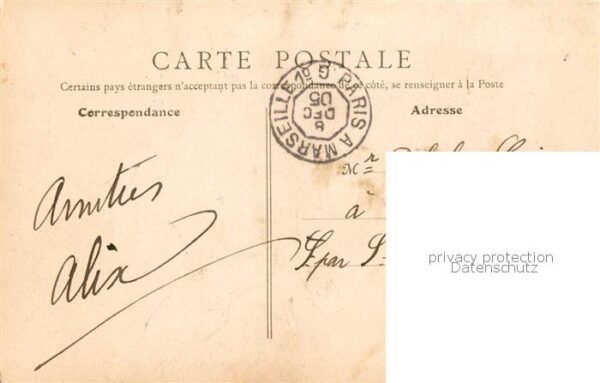 CARTE POSTALE
Certains pays étrangers n'acceptant pas la correspondance de ce côté, se renseigner à la Poste
Correspondance
Adresse
PARIS A MARSEILLE 1º G
8
DEC
05
Amitiés
Alix
Mr
à
par S
privacy protection
Datenschutz